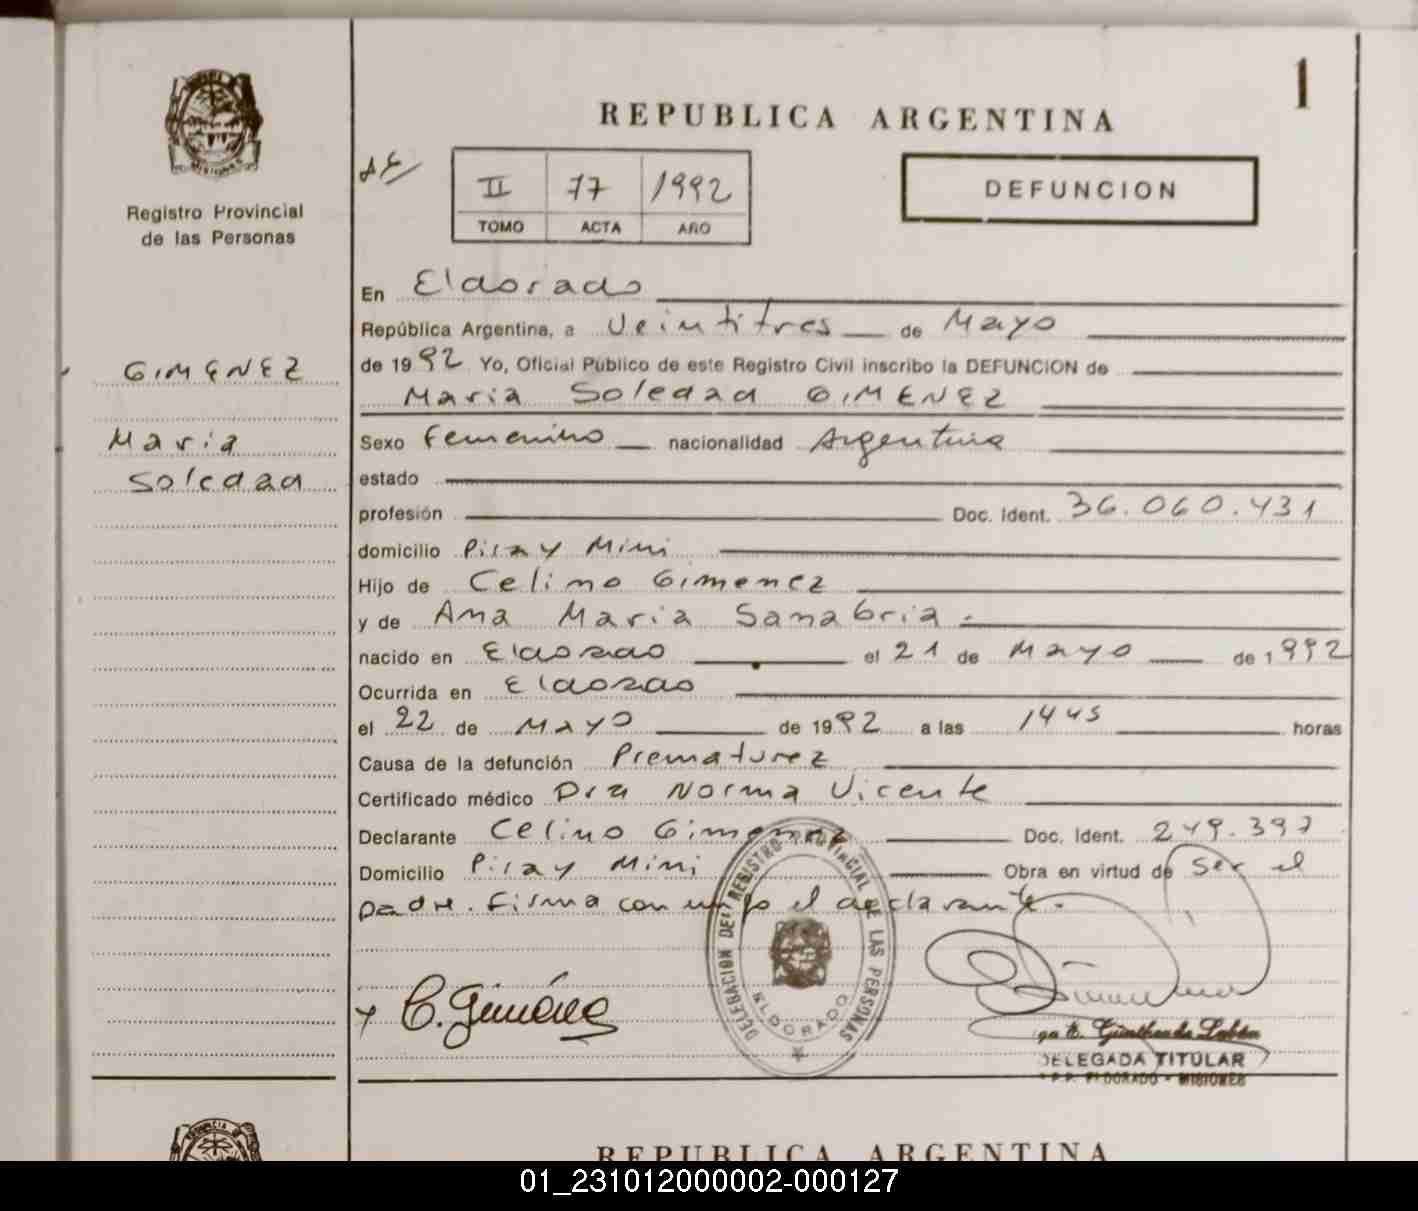 1
REPUBLICA ARGENTINA
DEFUNCION
II 77 1992
TOMO ACTA AÑO
MISIONES
Registro Provincial
de las Personas
GIMENEZ
Maria
Soledad
En Eldorado
República Argentina, a Veintitres de Mayo
de 1992 Yo, Oficial Público de este Registro Civil inscribo la DEFUNCION de
Maria Soledad GIMENEZ
Sexo Femenino nacionalidad Argentina
estado
profesión Doc. Ident. 36.060.431
domicilio Piray Mini
Hijo de Celino Gimenez
y de Ana Maria Sanabria.
nacido en Eldorado el 21 de Mayo de 1992
Ocurrida en Eldorado
el 22 de Mayo de 1992 a las 1445 horas
Causa de la defunción Prematurez
Certificado médico Dra Norma Vicente
Declarante Celino Gimenez Doc. Ident. 249.397
Domicilio Piray Mini Obra en virtud de Ser el
padre. Firma conmigo el declarante.
C. Giménez
DELEGACION DEL REGISTRO PROVINCIAL DE LAS PERSONAS
ELDORADO
DELEGADA TITULAR
ELDORADO - MISIONES
PROVINCIA
REPUBLICA ARGENTINA
01_231012000002-000127